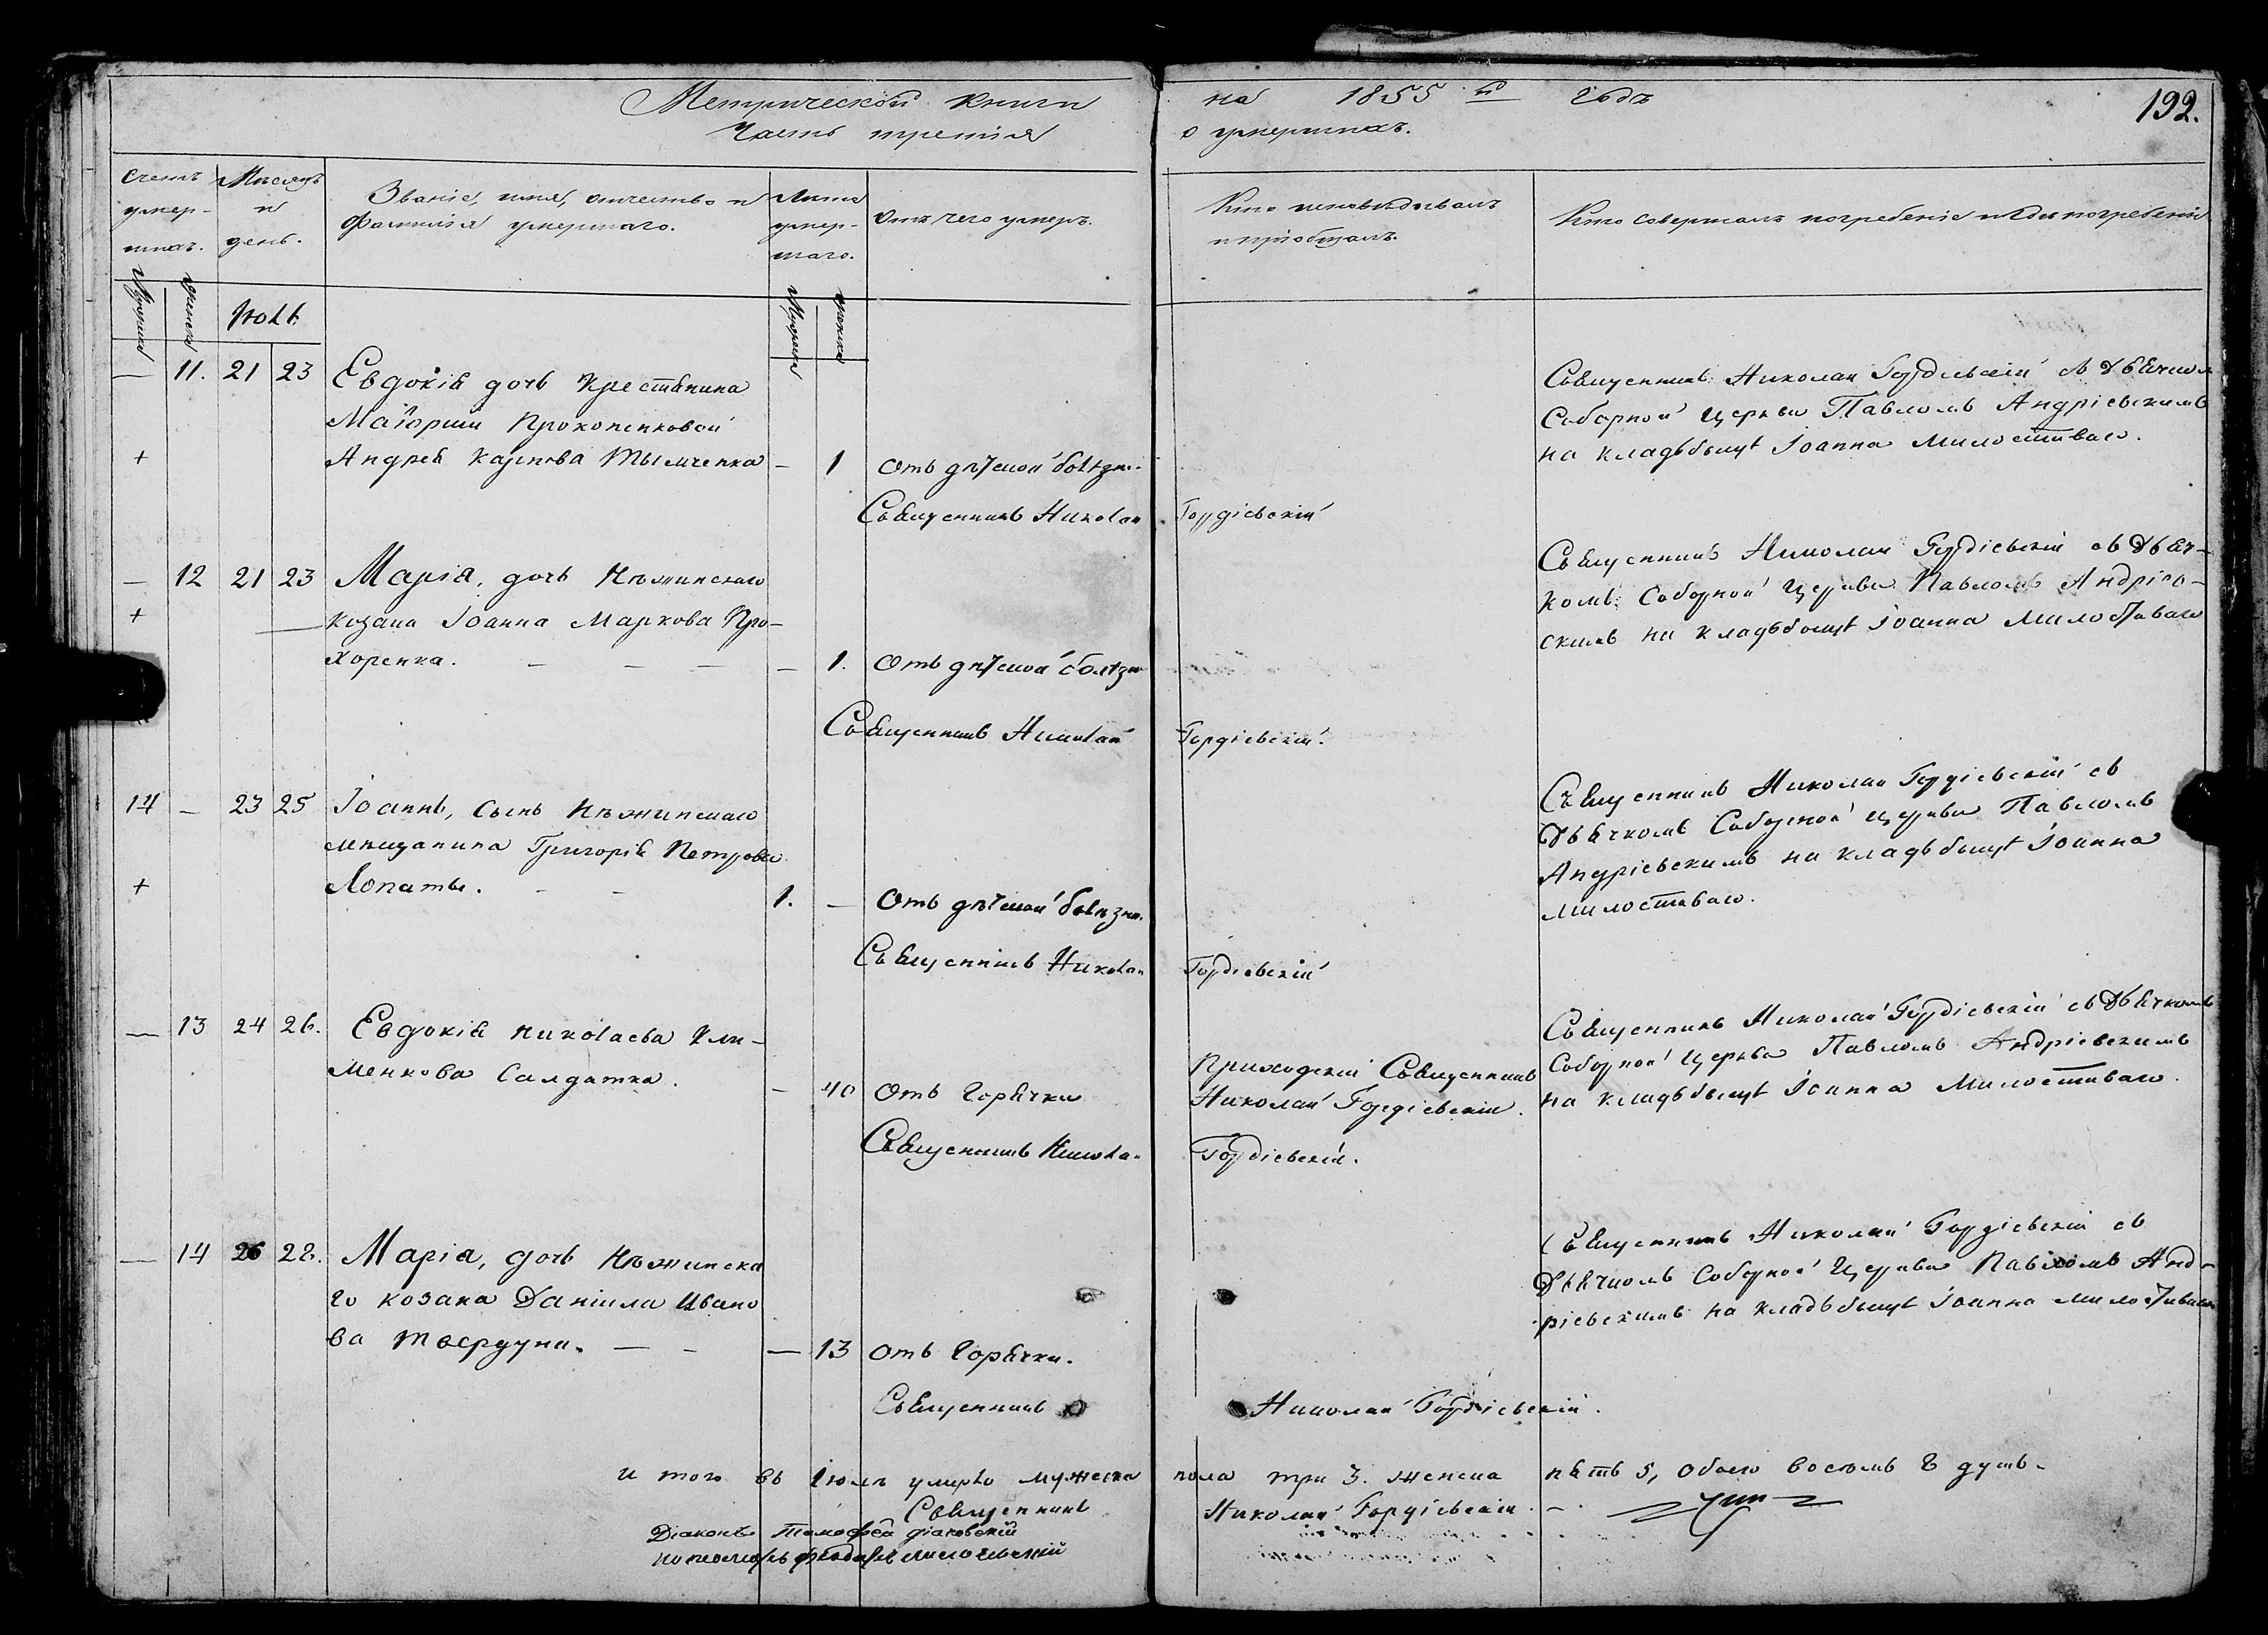 Метрической книги на 1855 й годъ
192.
Часть третія о умершихъ.
Счетъ умер-шихъ.
Мѣсяцъ и день.
Званіе, имя, отчество и фамилія умершаго.
Лѣта умер-шаго.
Отъ чего умеръ.
Кто исповѣдывалъ и пріобщалъ.
Кто совершалъ погребеніе и гдѣ погребены
Мужеска
Женска
Іюль
Мужеска
Женска
— 11. 21 23 Евдокія дочь Крестьянина
Маіорши Прокопенковой
+ Андрея Карпова — 1 Отъ дѣтской болѣзни.
Священникъ Николай Гордіевскій
Священникъ Николай Гордіевскій съ Дьячком
Соборной Церкви Павломъ Андріевскимъ
на кладьбищѣ Іоанна Милостиваго.
— 12 21 23 Марія, дочь Нѣжинскаго
+ козака Іоанна Маркова Про-
хоренка. — — — — 1. Отъ дѣтской болѣзни
Священникъ Николай Гордіевскій.
Священникъ Николай Гордіевскій съ Дьяч-
комъ Соборной Церкви Павломъ Андріев-
скимъ на кладьбищѣ Іоанна Милостиваго
14 — 23 25 Іоаннъ, сынъ Нѣжинскаго
мѣщанина Григорія Петрова
+ Лопаты. - - 1. — Отъ дѣтской болѣзни.
Священникъ Николай Гордіевскій
Священникъ Николай Гордіевскій съ
Дьячкомъ Соборной Церкви Павломъ
Андріевскимъ на кладьбищѣ Іоанна
Милостиваго.
— 13 24 26. Евдокія Николаева Кли-
менкова Салдатка. — 40 Отъ Горячки
Приходскій Священникъ
Николай Гордіевскій.
Священникъ Николай Гордіевскій.
Священникъ Николай Гордіевскій съ Дьячкомъ
Соборной Церкви Павломъ Андріевскимъ
на кладьбищѣ Іоанна Милостиваго.
— 14 26 28. Марія, дочь Нѣжинска
го козака Даніила Ивано
ва Твердуна. — - — 13 Отъ Горячки.
Священникъ Николай Гордіевскій.
Священникъ Николай Гордіевскій съ
Дьячкомъ Соборной Церкви Павломъ Анд-
ріевскимъ на кладьбищѣ Іоанна Милостиваго
И того въ Іюлѣ умерло мужеска пола три 3. женска пять 5, обоего восемь 8 душъ.
Священникъ Николай Гордіевскій.
Діаконъ Тимофей